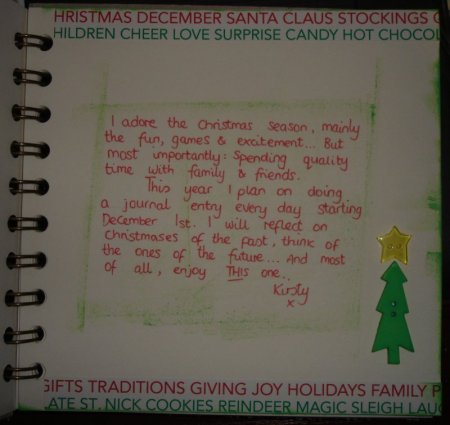 HRISTMAS DECEMBER SANTA CLAUS STOCKINGS
HILDREN CHEER LOVE SURPRISE CANDY HOT CHOCOL
I adore the Christmas season, mainly
the fun, games & excitement... But
most importantly: Spending quality
time with family & friends.
This year I plan on doing
a journal entry every day starting
December 1st. I will reflect on
Christmases of the past, think of
the ones of the future... And most
of all, enjoy THIS one..
Kirsty
x
GIFTS TRADITIONS GIVING JOY HOLIDAYS FAMILY P
LATE ST. NICK COOKIES REINDEER MAGIC SLEIGH LAUG